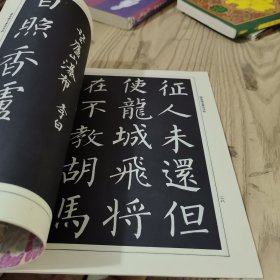 征人未還但
使龍城飛將
在不教胡馬
望廬山瀑布 李白
日照香爐